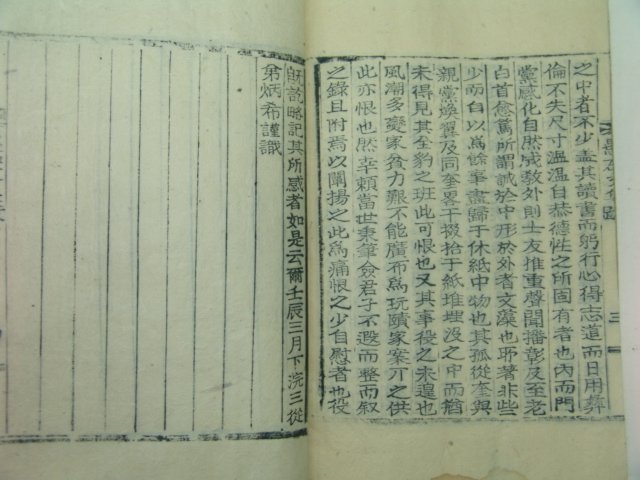 之中者不少盖其讀書而躬行心得志道而日用彝
倫不失尺寸溫溫自恭德性之所固有者也內而門
黨感化自然成敎外則士友推重聲聞播彰及至老
白首愈篤所謂誠於中形於外者文藻也耶著非些
少而自以爲餘事盡歸于休紙中物也其孤從奎與
親黨煥翼及同奎畧干掇拾于紙堆埋沒之中而猶
未得見其全豹之班此可恨也又其事役之未遑也
風潮多變家貧力艱不能廣布爲玩賾家案丌之供
此亦恨也然幸賴當世秉筆僉君子不遐而整而叙
之錄且附焉以闡揚之此爲痛恨之少自慰者也役
旣訖略記其所感者如是云爾壬辰三月下浣三從
弟炳希謹識
三